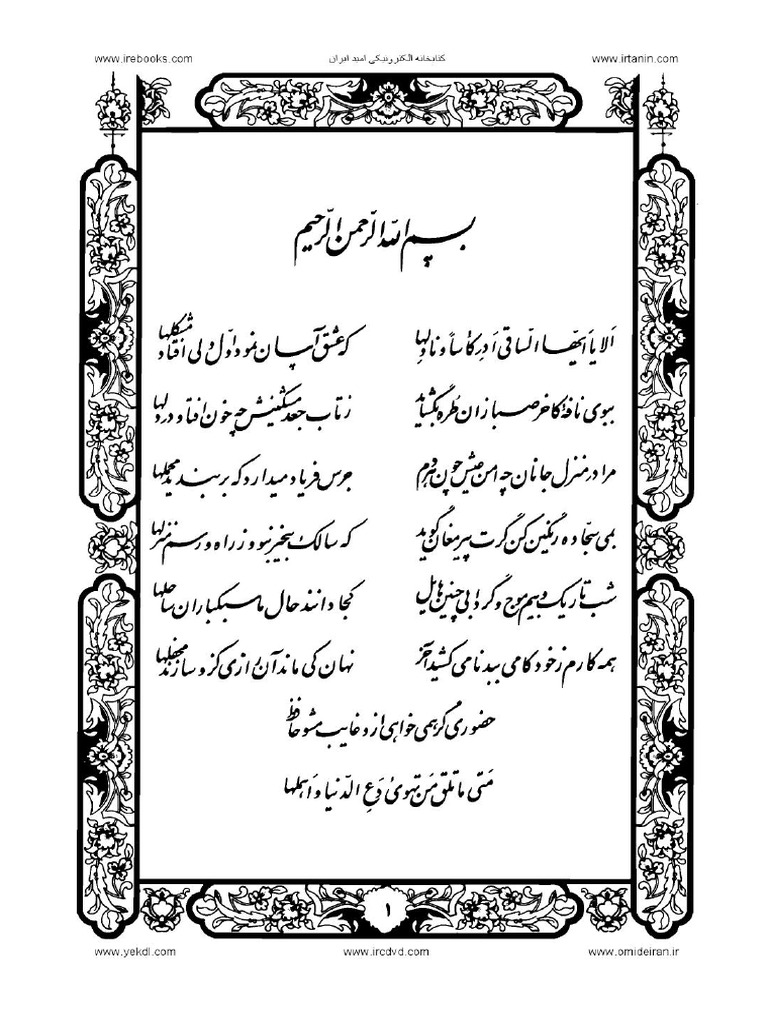 www.irebooks.com کتابخانه الکترونیکی امید ایران www.irtanin.com
بسم الله الرّحمن الرّحیم
اَلا یا اَیّها السّاقی اَدِر کاساً و ناوِلها که عشق آسان نمود اوّل ولی افتاد مشکلها
ببوی نافهٔ کاخر صبا زان طُره بگشاید ز تاب جعد مشکینش چه خون افتاد در دلها
مرا در منزل جانان چه امن عیش چون هر دم جرس فریاد میدارد که بربندید محملها
بمی سجّاده رنگین کن گرت پیر مغان گوید که سالک بیخبر نبود ز راه و رسم منزلها
شب تاریک و بیم موج و گردابی چنین هایل کجا دانند حال ما سبکباران ساحلها
همه کارم ز خود کامی ببدنامی کشید آخر نهان کی ماند آن رازی کزو سازند محفلها
حضوری گر همی خواهی ازو غایب مشو حافظ
مَتی ما تلق مَن تهویٰ دَعِ الدّنیا و اَهملها
۱
www.yekdl.com www.ircdvd.com www.omideiran.ir